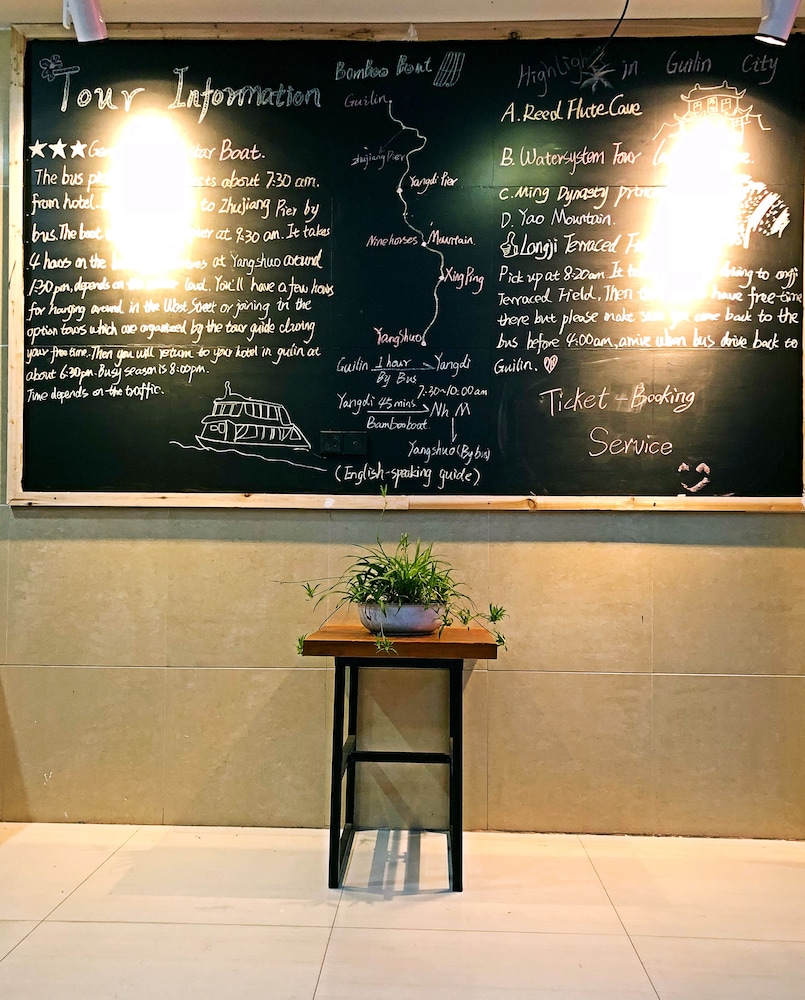 Tour Information
★★★ Boat.
The bus about 7:30 am.
from hotel to Zhujiang Pier by
bus. The boat at 9:30 am. It takes
4 on the at Yangshuo around
1:30 pm, depends on the load. You'll have a few hours
for hanging around in the West Street or joining in the
option tours which are organized by the tour guide during
your free time. Then you will return to your hotel in guilin at
about 6:30pm. Busy season is 8:00pm.
Time depends on the traffic.
Bamboo Boat
Guilin
Zhujiang Pier
Yangdi Pier
Nine horses Mountain
XingPing
Yangshuo
Guilin 1 hour → Yangdi
By Bus
7:30~10:00 am
Yangdi 45 mins. → Nh M
Bamboo boat
Yangshuo (By bus)
(English-speaking guide)
Highlight in Guilin City
A. Reed Flute Cave
B. Watersystem Tour
C. Ming Dynasty
D. Yao Mountain.
Longji Terraced
Pick up at 8:20am. It to
Terraced Field, Then have free time
there but please make come back to the
bus before 4:00am, bus drive back to
Guilin.
Ticket - Booking
Service